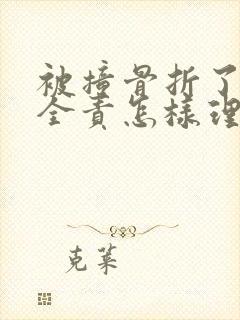 被撞骨折了
全责怎样理
克莱